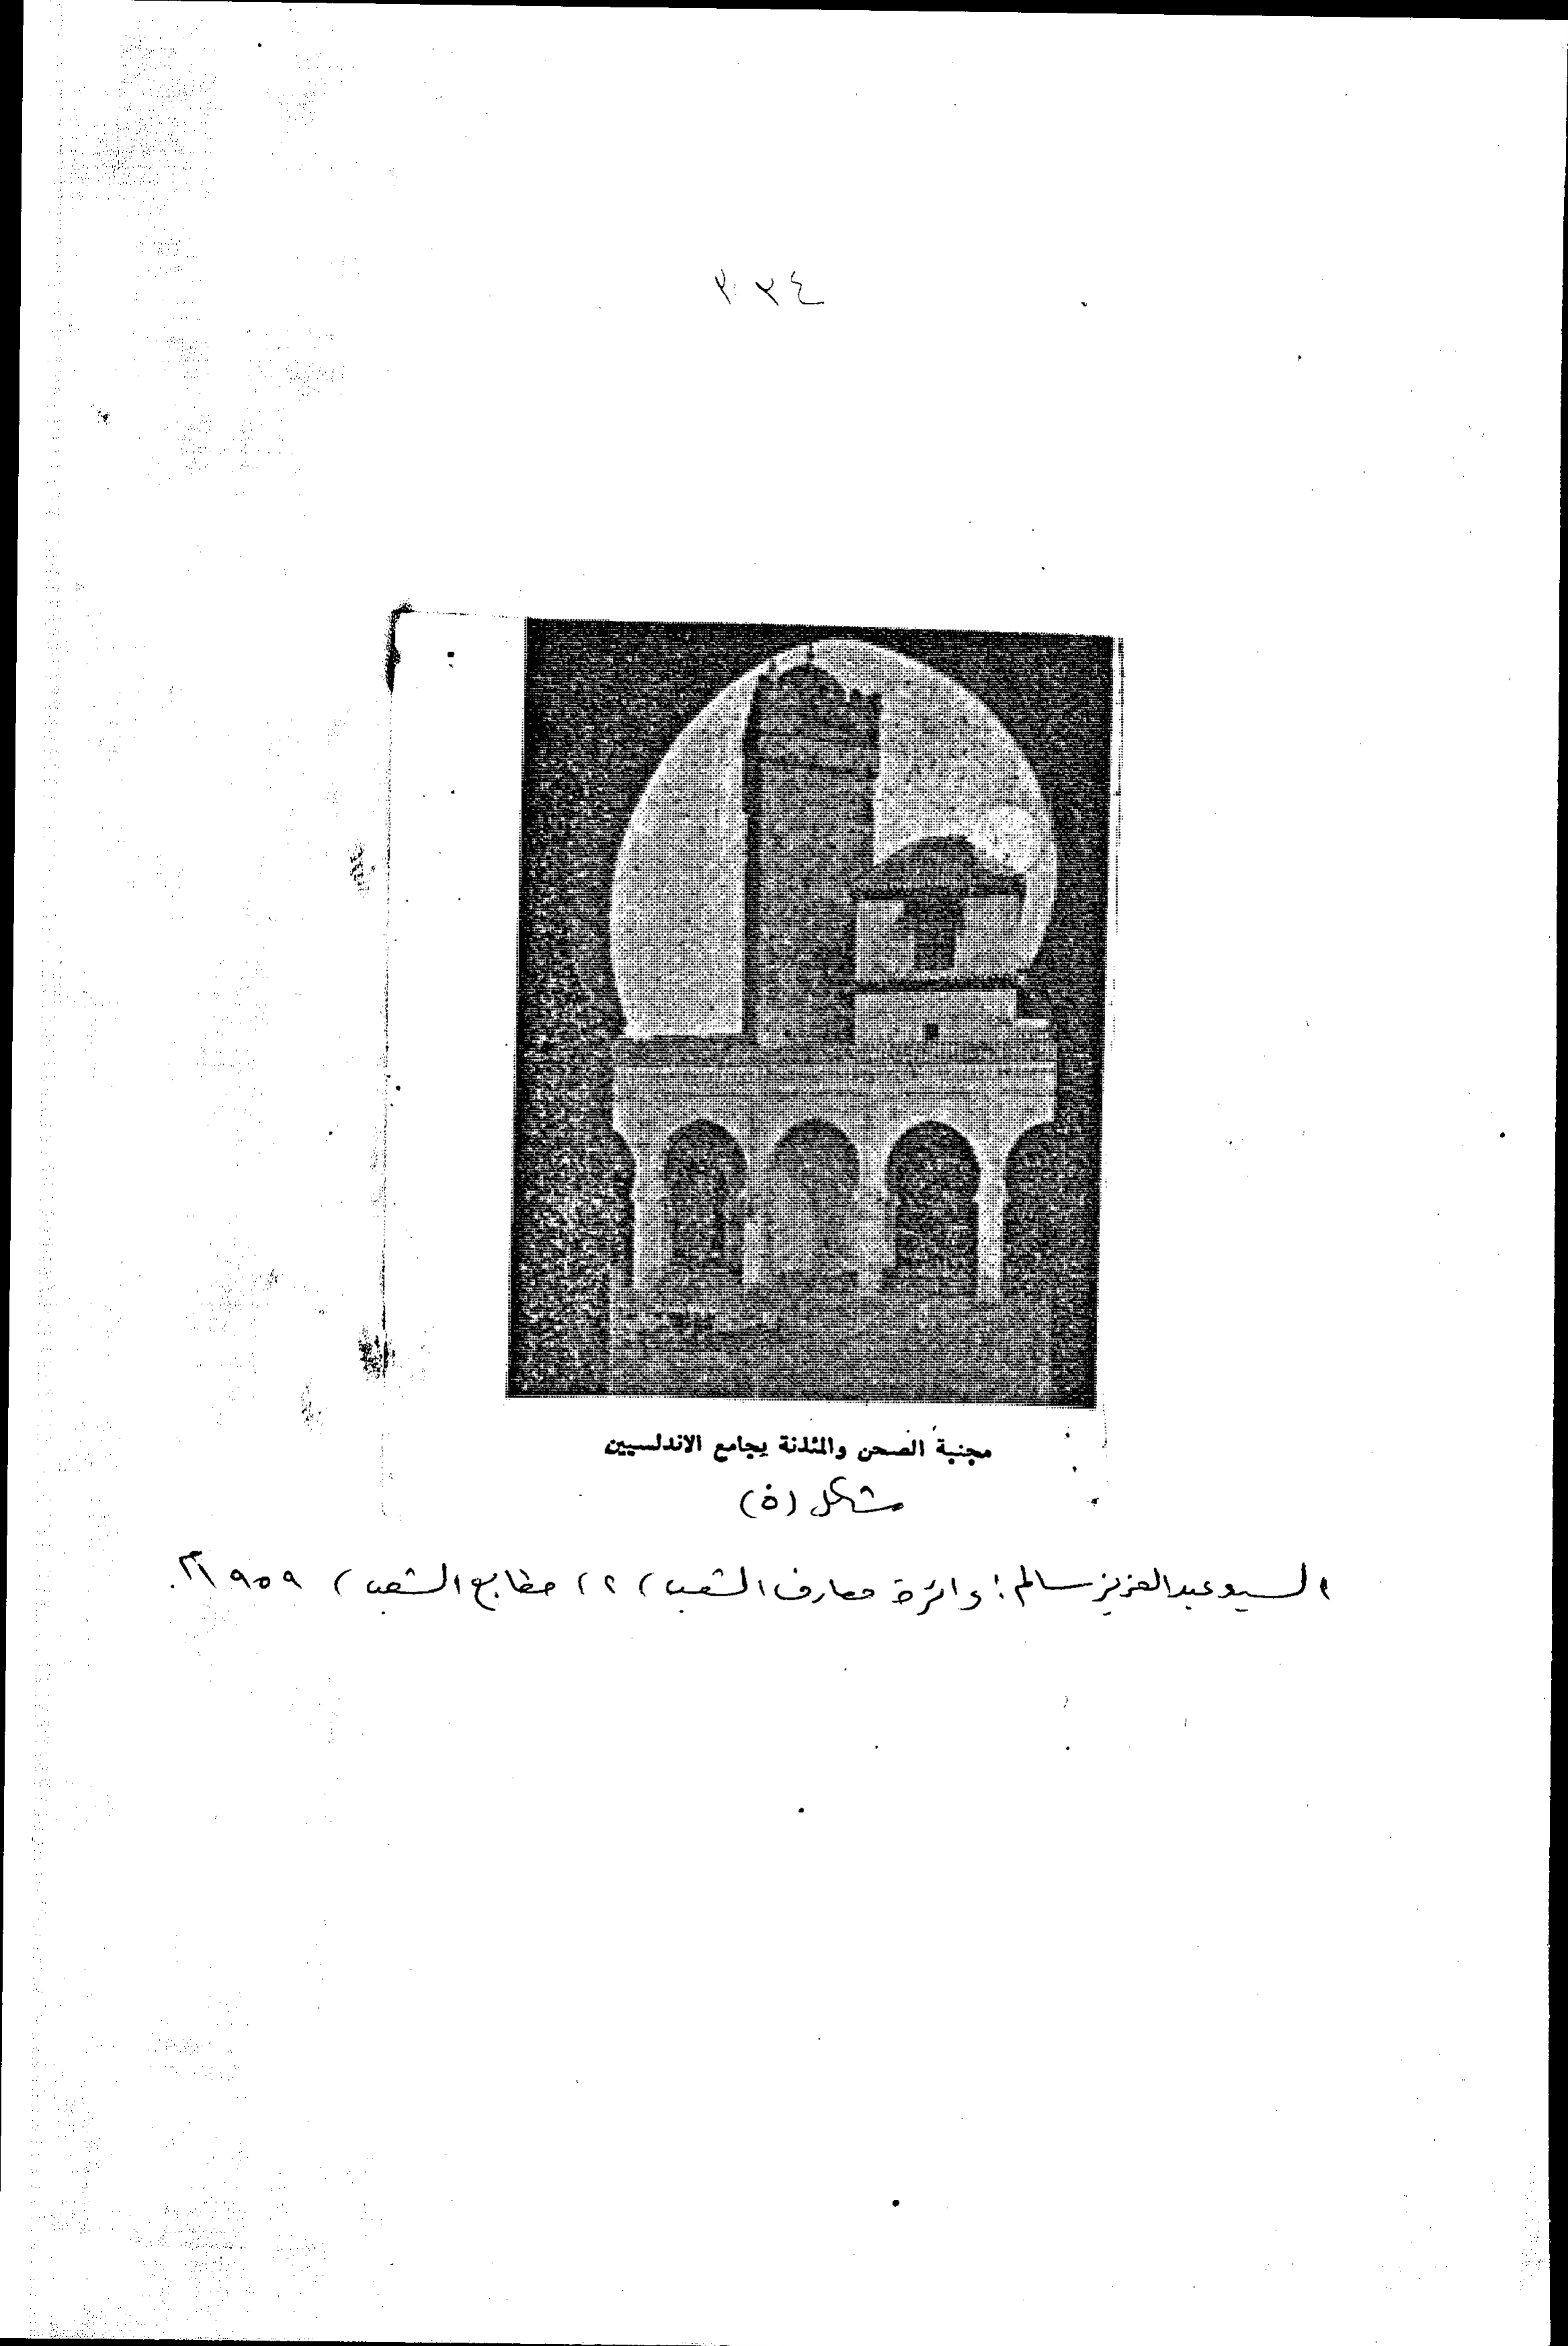 ٣٢٤
مجنبة الصحن والمئذنة بجامع الاندلسيين
شكل (٥)
السيد عبد العزيز سالم: دائرة معارف الشعب، ٢، مطابع الشعب، ١٩٥٩م.